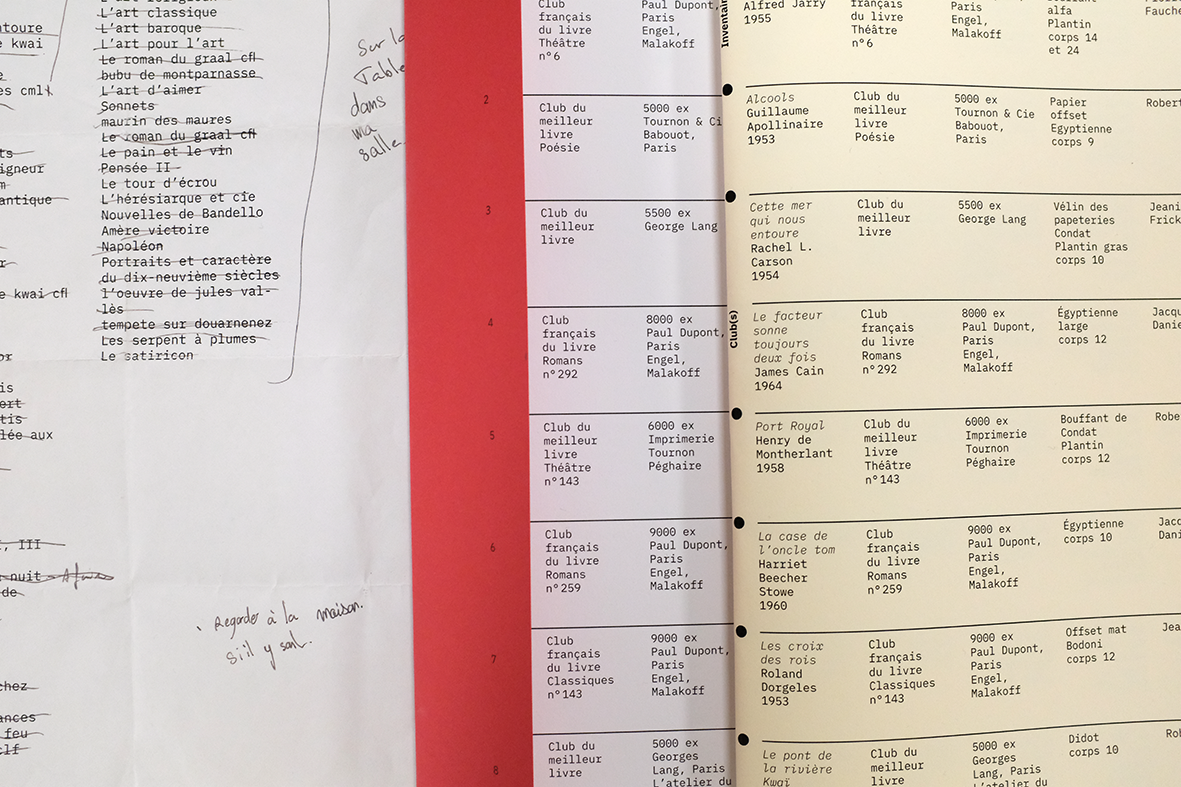 L'art classique
L'art baroque
L'art pour l'art
Le roman du graal cfl
bubu de montparnasse
L'art d'aimer
Sonnets
maurin des maures
Le roman du graal cfl
Le pain et le vin
Pensée II
Le tour d'écrou
L'hérésiarque et cie
Nouvelles de Bandello
Amère victoire
Napoléon
Portraits et caractère
du dix-neuvième siècles
l'oeuvre de jules val-
lès
tempete sur douarnenez
Les serpent à plumes
Le satiricon
kwai
es cml
igneur
antique
e kwai cfl
lée aux
, III
nuit
de
feu
Sur la
Table
dans
ma
salle
. Regarder à la maison.
si il y sont.
2
3
4
5
6
7
8
Club
français
du livre
Théâtre
n°6
Paul Dupont,
Paris
Engel,
Malakoff
Club du
meilleur
livre
Poésie
5000 ex
Tournon & Ci
Babouot,
Paris
Club du
meilleur
livre
5500 ex
George Lang
Club
français
du livre
Romans
n°292
8000 ex
Paul Dupont,
Paris
Engel,
Malakoff
Club du
meilleur
livre
Théâtre
n°143
6000 ex
Imprimerie
Tournon
Péghaire
Club
français
du livre
Romans
n°259
9000 ex
Paul Dupont,
Paris
Engel,
Malakoff
Club
français
du livre
Classiques
n°143
9000 ex
Paul Dupont,
Paris
Engel,
Malakoff
Club du
meilleur
livre
5000 ex
Georges
Lang, Paris
L'atelier du
Inventair
Club(s)
Alfred Jarry
1955
français
du livre
Théâtre
n°6
Paris
Engel,
Malakoff
alfa
Plantin
corps 14
et 24
Fauche
Alcools
Guillaume
Apollinaire
1953
Club du
meilleur
livre
Poésie
5000 ex
Tournon & Cie
Babouot,
Paris
Papier
offset
Egyptienne
corps 9
Robert
Cette mer
qui nous
entoure
Rachel L.
Carson
1954
Club du
meilleur
livre
5500 ex
George Lang
Vélin des
papeteries
Condat
Plantin gras
corps 10
Jeani
Frick
Le facteur
sonne
toujours
deux fois
James Cain
1964
Club
français
du livre
Romans
n°292
8000 ex
Paul Dupont,
Paris
Engel,
Malakoff
Égyptienne
large
corps 12
Jacqu
Danie
Port Royal
Henry de
Montherlant
1958
Club du
meilleur
livre
Théâtre
n°143
6000 ex
Imprimerie
Tournon
Péghaire
Bouffant de
Condat
Plantin
corps 12
Robe
La case de
l'oncle tom
Harriet
Beecher
Stowe
1960
Club
français
du livre
Romans
n°259
9000 ex
Paul Dupont,
Paris
Engel,
Malakoff
Égyptienne
corps 10
Jacq
Dani
Les croix
des rois
Roland
Dorgeles
1953
Club
français
du livre
Classiques
n°143
9000 ex
Paul Dupont,
Paris
Engel,
Malakoff
Offset mat
Bodoni
corps 12
Jea
Le pont de
la rivière
Kwaï
Club du
meilleur
livre
5000 ex
Georges
Lang, Paris
L'atelier du
Didot
corps 10
Rob